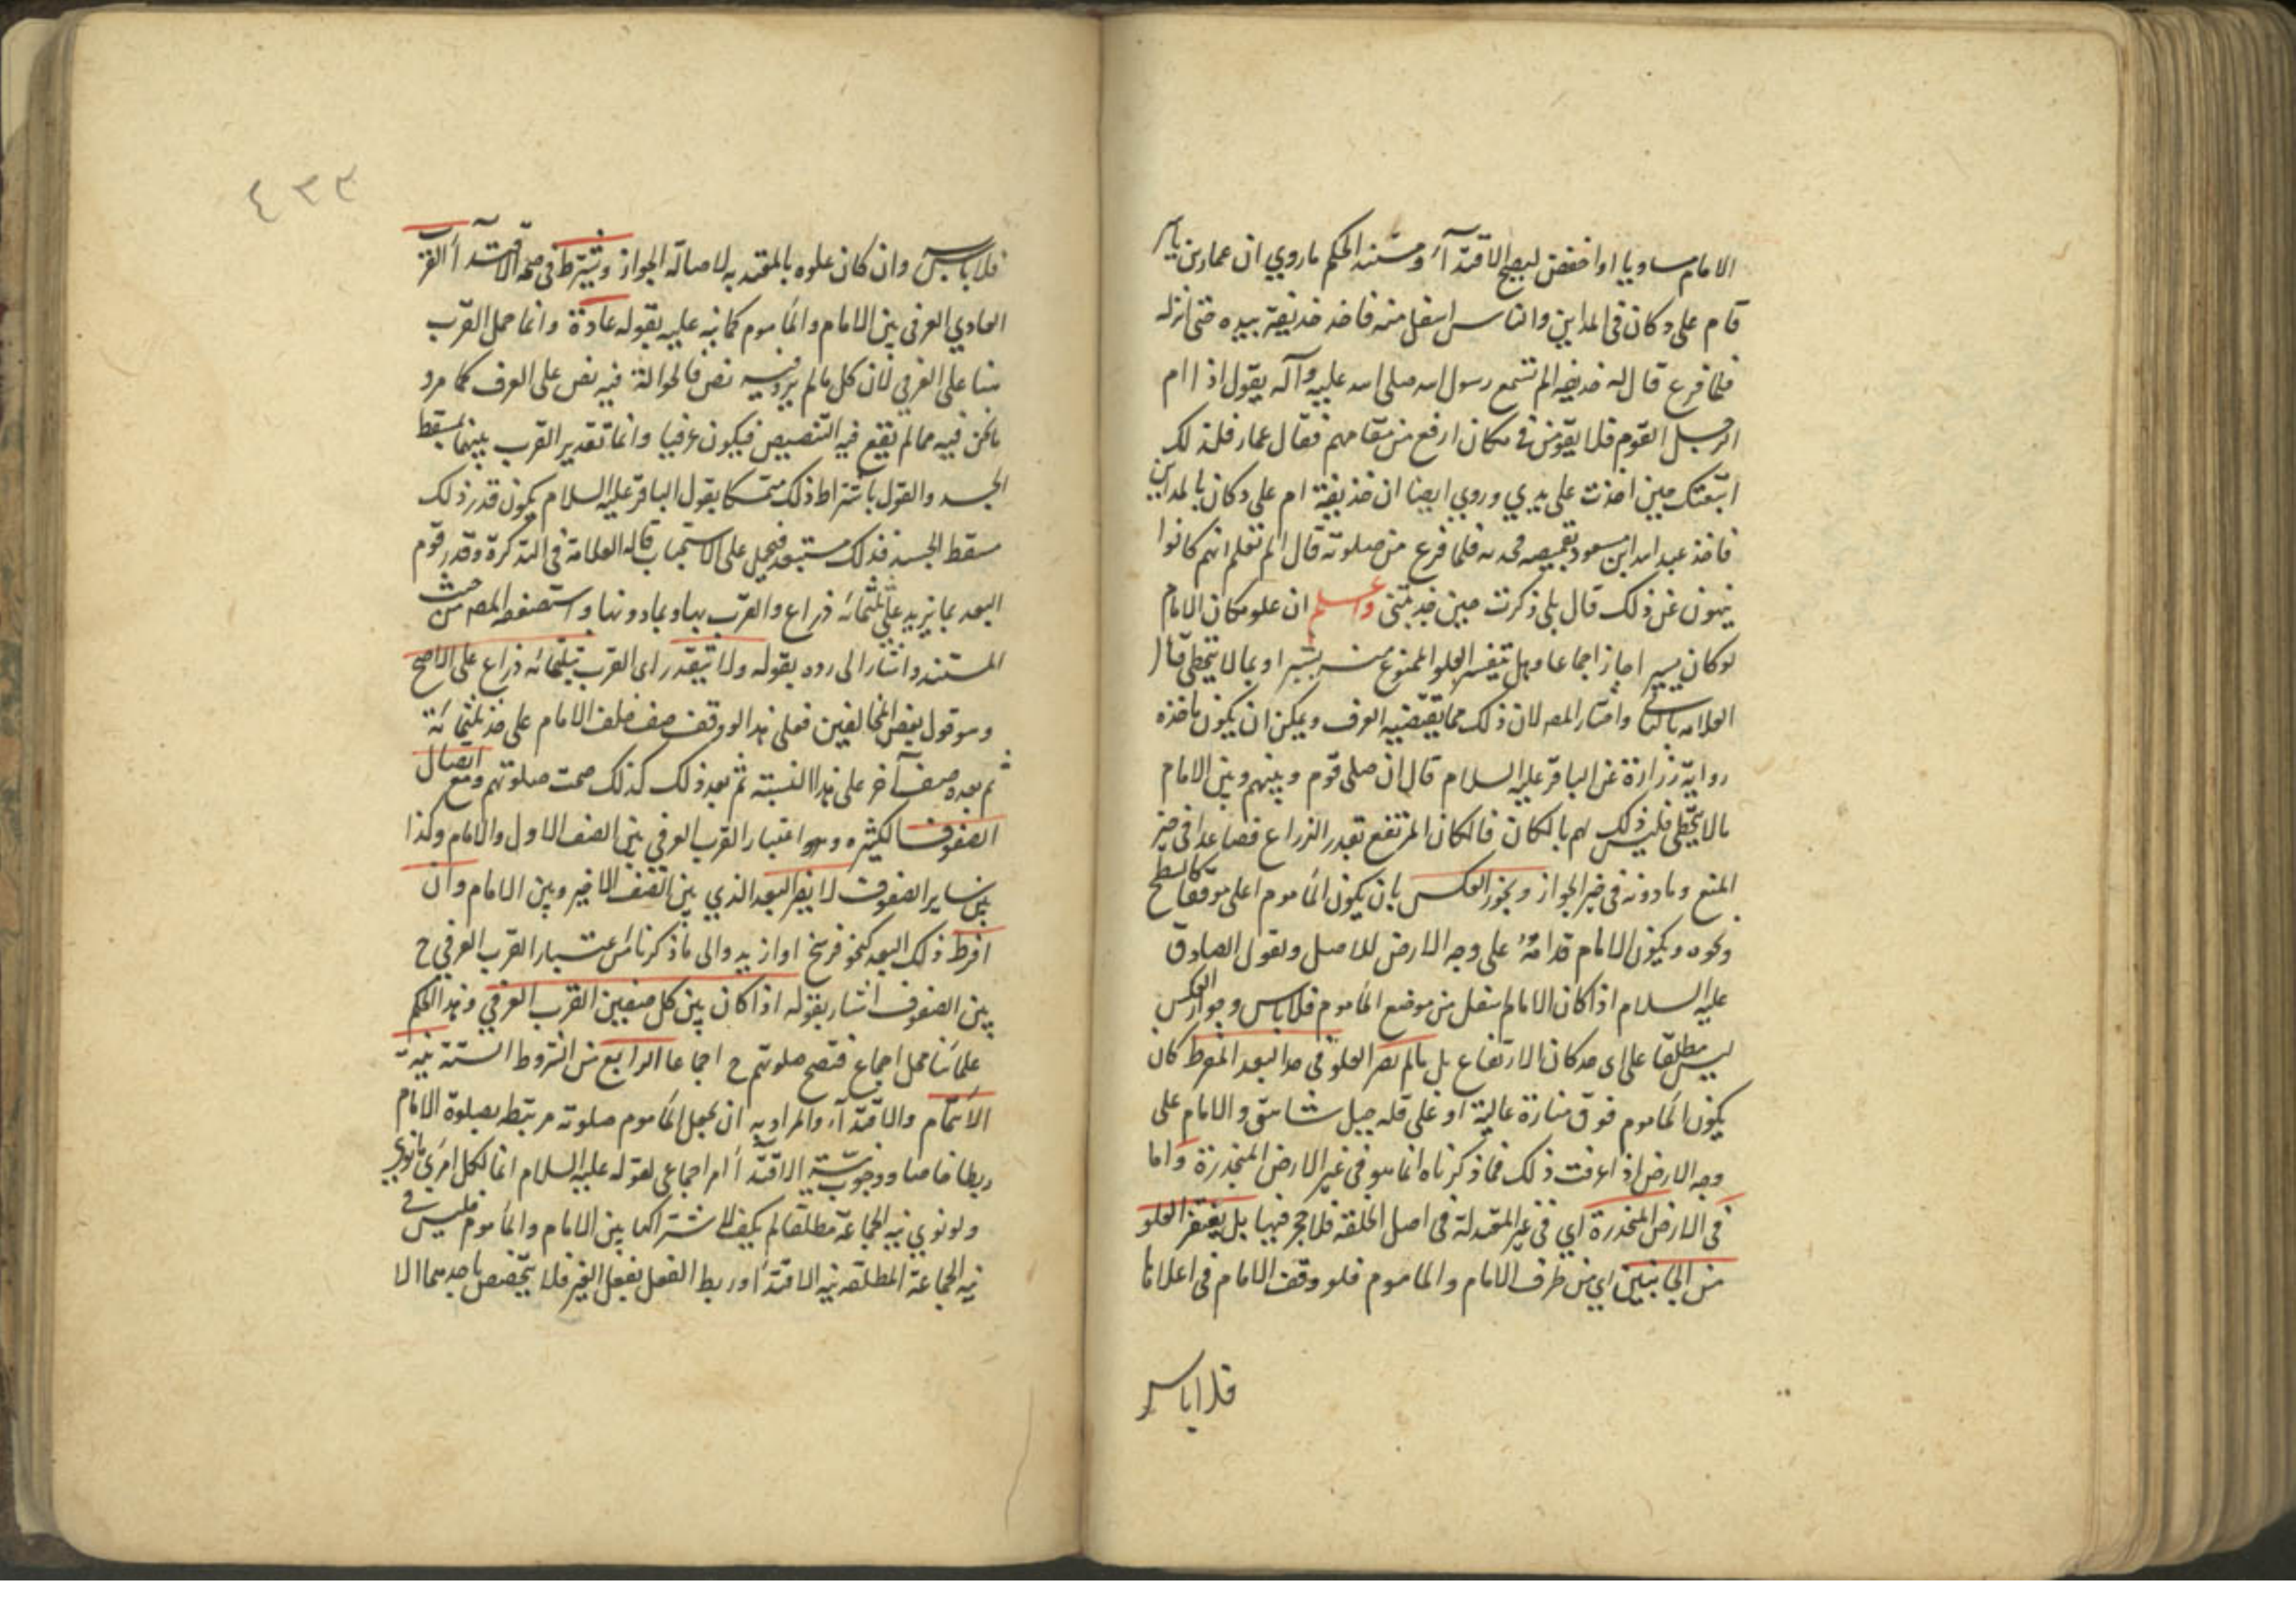 الامام مساويا او اخفض ليصح الاقتدآء ومستند الحكم ما روي ان عمار بن ياسر
قام على دكان في المداين والناس اسفل منه فاخذ حذيفة بيده حتى انزله
فلما فرغ قال له حذيفه الم تسمع رسول الله صلى الله عليه وآله يقول اذا ام
الرجل القوم فلا يقومن في مكان ارفع من مقامهم فقال عمار فلذلك
اتبعتك حين اخذت على يدي وروي ايضا ان حذيفة ام على دكان بالمداين
فاخذ عبد الله ابن مسعود بقميصه فجذبه فلما فرغ من صلوته قال الم تعلم انهم كانوا
ينهون عن ذلك قال بلى ذكرت حين جذبتني واعلم ان علو مكان الامام
لو كان يسيرا جاز اجماعا وهل يتقدر العلو الممنوع منه بشبر او بما لا يتخطى قال
العلامه بالثاني واختار المصـ لان ذلك مما يقتضيه العرف ويمكن ان يكون ماخذه
رواية زرارة عن الباقر عليه السلام قال ان صلى قوم وبينهم وبين الامام
ما لا يتخطى فليس ذلك لهم بالمكان فالمكان المرتفع بقدر الذراع فصاعدا في حيز
المنع وما دونه في حيز الجواز ويجوز العكس بان يكون المأموم اعلى موقفا كالسطح
ونحوه ويكون الامام قدامه على وجه الارض للاصل ولقول الصادق
عليه السلام اذا كان الامام اسفل من موضع المأموم فلا باس وجواز العكس
ليس مطلقا على اى حد كان الارتفاع بل ما لم يصر العلو في حد البعد المفرط كان
يكون المأموم فوق منارة عالية او على قله جبل شاهق والامام على
وجه الارض اذا عرفت ذلك فما ذكرناه انما هو في غير الارض المنحدرة واما
في الارض المنحدرة اي في غير المعتدلة في اصل الخلقة فلا حجر فيها بل يغتفر العلو
من الجانبين اي من طرف الامام والماموم فلو وقف الامام في اعلاها
فلا باس
٤٣٣
فلا باس وان كان علوه بالمعتد به لاصالة الجواز ويشترط في صحه الاقتدآء القرب
العادي العرفي بين الامام والمأموم كما نبه عليه بقوله عادة وانما حمل القرب
هنا على العرفي لان كل ما لم يرد فيه نص فالحوالة فيه نص على العرف كما مر و
ما نحن فيه مما لم يقع فيه التنصيص فيكون عرفيا وانما تقدير القرب بينهما بمسقط
الجسد والقول باشتراط ذلك متمسكا بقول الباقر عليه السلام يكون قدر ذلك
مسقط الجسد فذلك مستبعد فيحمل على الاستحباب قاله العلامة في التذكرة وقدر قوم
البعد بما يزيد على ثلثمائة ذراع والقرب بها وبما دونها واستضعفه المصـ من حيث
المستند واشار الى رده بقوله ولا يتقدر اى القرب بثلثمائه ذراع على الاصح
وهو قول بعض المخالفين فعلى هذا لو وقف صف خلف الامام على حد ثلثمائة
ثم بعده صف آخر على هذا النسبته ثم بعد ذلك كذلك صحت صلوتهم ومع اتصال
الصفوف الكثيره واعتبار القرب العرفي بين الصف الاول والامام وكذا
بين ساير الصفوف لا يضر البعد الذي بين الصف الاخير وبين الامام وان
افرط ذلك البعد كنحو فرسخ او ازيد والى ما ذكرنا من اعتبار القرب العرفي ح
بين الصفوف اشار بقوله اذا كان بين كل صفين القرب العرفي وهذا الحكم
علمائنا محل اجماع فتصح صلوتهم ح اجماعا الرابع من الشروط الستة نية
الائتمام والاقتدآء والمراد به ان يجعل المأموم صلوته مرتبط بصلوة الامام
ربطا خاصا ووجوب نية الاقتدآ امر اجماعي لقوله عليه السلام انما لكل امرئ ما نوى
ولو نوى نيه الجماعة مطلقا لم يكف لاشتراكها بين الامام والمأموم فليس في
نيه الجماعة المطلقه نيه الاقتدآ وربط الفعل بفعل الغير فلا يتخصص باحدهما الا